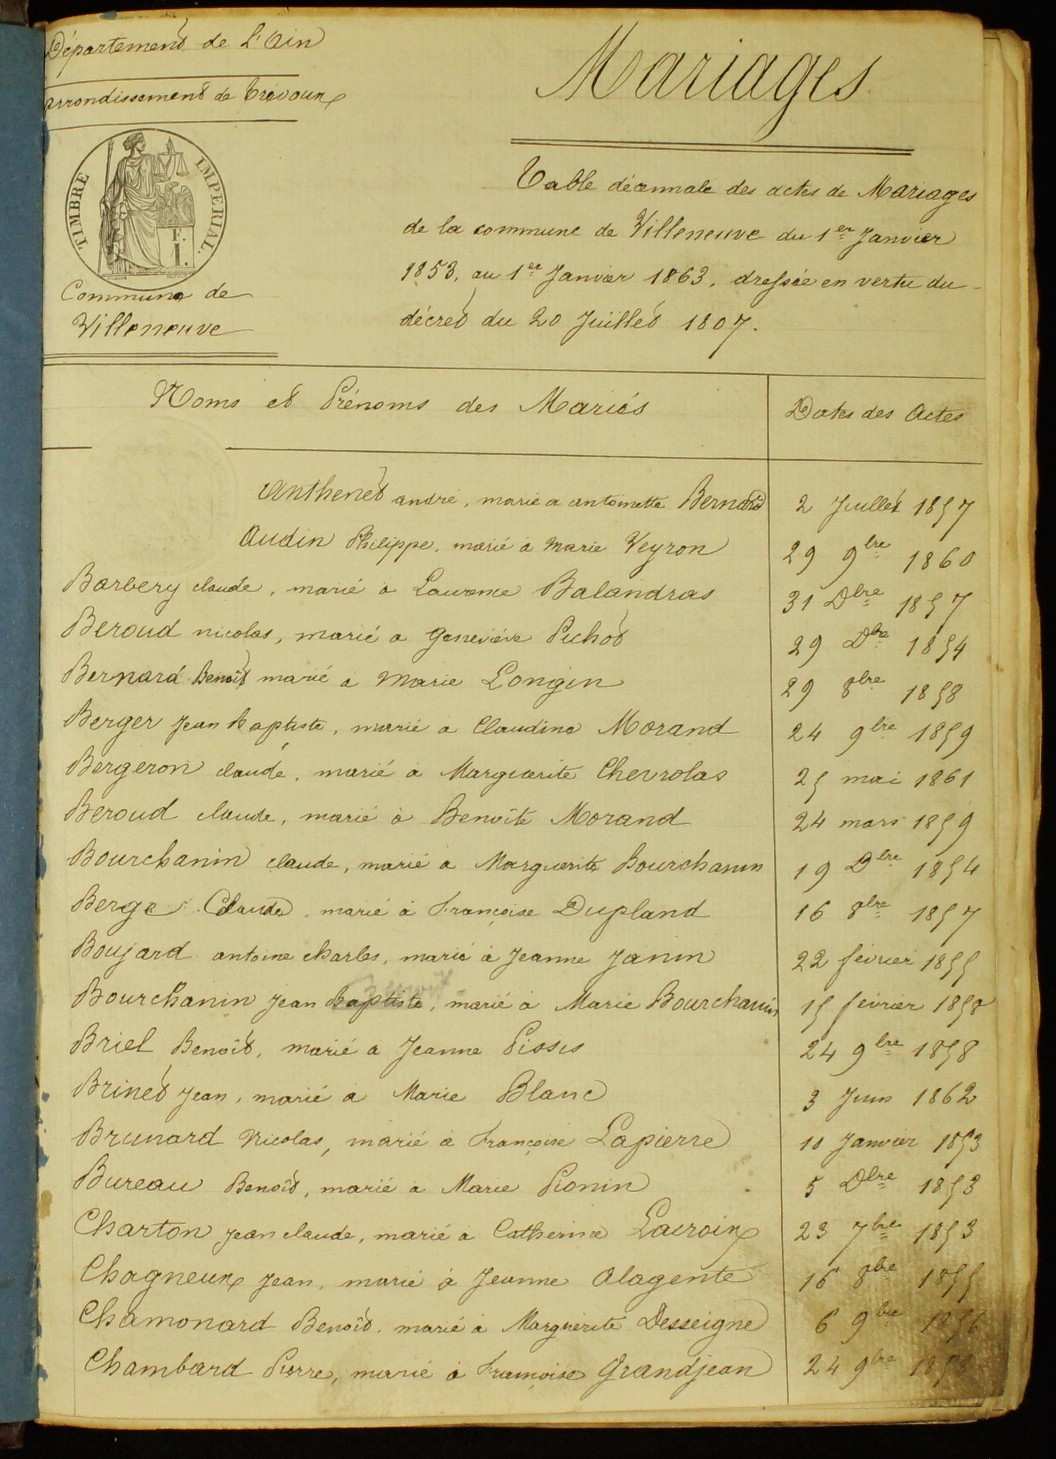 Département de l'Ain
Arrondissement de Trévoux
TIMBRE IMPERIAL
Commune de
Villeneuve
Mariages
Table décennale des actes de Mariages
de la commune de Villeneuve du 1er Janvier
1853, au 1er Janvier 1863, dressée en vertu du
décret du 20 Juillet 1807.
Noms et Prénoms des Mariés Dates des Actes
Anthenet andré, marié a antoinette Bernard 2 Juillet 1857
Audin Philippe, marié à marie Veyron 29 9bre 1860
Barbery claude, marié à Laurence Balandras 31 Dbre 1857
Beroud nicolas, marié a geneviève Pichot 29 Dbre 1854
Bernard Benoît marié a Marie Longin 29 8bre 1858
Berger Jean baptiste, marié a Claudine Morand 24 9bre 1859
Bergeron claude, marié à Marguerite Chevrolas 25 mai 1861
Beroud claude, marié à Benoîte Morand 24 mars 1859
Bourchanin claude, marié a Marguerite Bourchanin 19 Dbre 1854
Berge Claude, marié à Françoise Dupland 16 8bre 1857
Boujard antoine charles, marié à Jeanne Janin 22 février 1855
Bourchanin Jean baptiste, marié à Marie Bourchanin 15 février 1858
Briel Benoît, marié a Jeanne 24 9bre 1858
Brinet Jean, marié à Marie Blanc 3 Juin 1862
Brunard Nicolas, marié à françoise Lapierre Janvier 1853
Bureau Benoît, marié a Marie Pionin 5 Dbre 1853
Charton Jean claude, marié à Catherine Lacroix 23 7bre 1853
Chagneux Jean, marié à Jeanne Alagente 16 8bre 1855
Chamonard Benoît, marié à Marguerite Desseigne 6 9bre 1856
Chambard Pierre, marié à françoise Grandjean 24 9bre